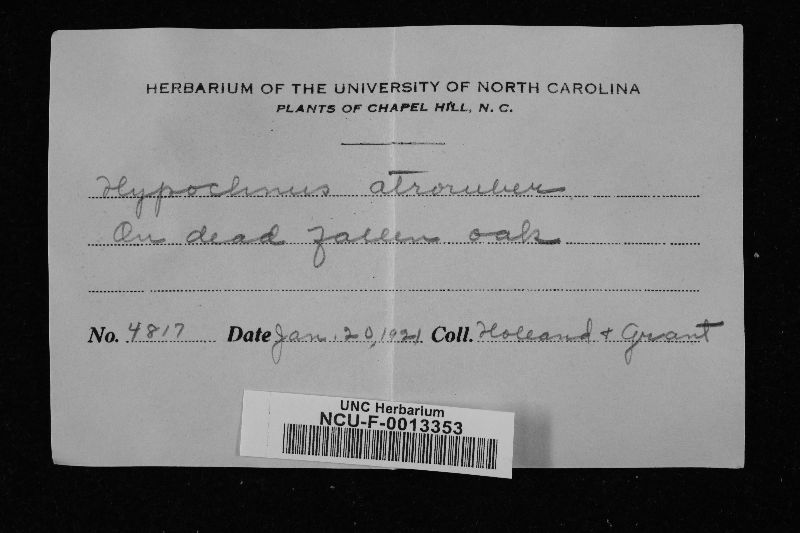 HERBARIUM OF THE UNIVERSITY OF NORTH CAROLINA
PLANTS OF CHAPEL HILL, N. C.
Hypochnus atroruber
On dead fallen oak
No. 4817 Date Jan. 20, 1921 Coll. Holland + Grant
UNC Herbarium
NCU-F-0013353